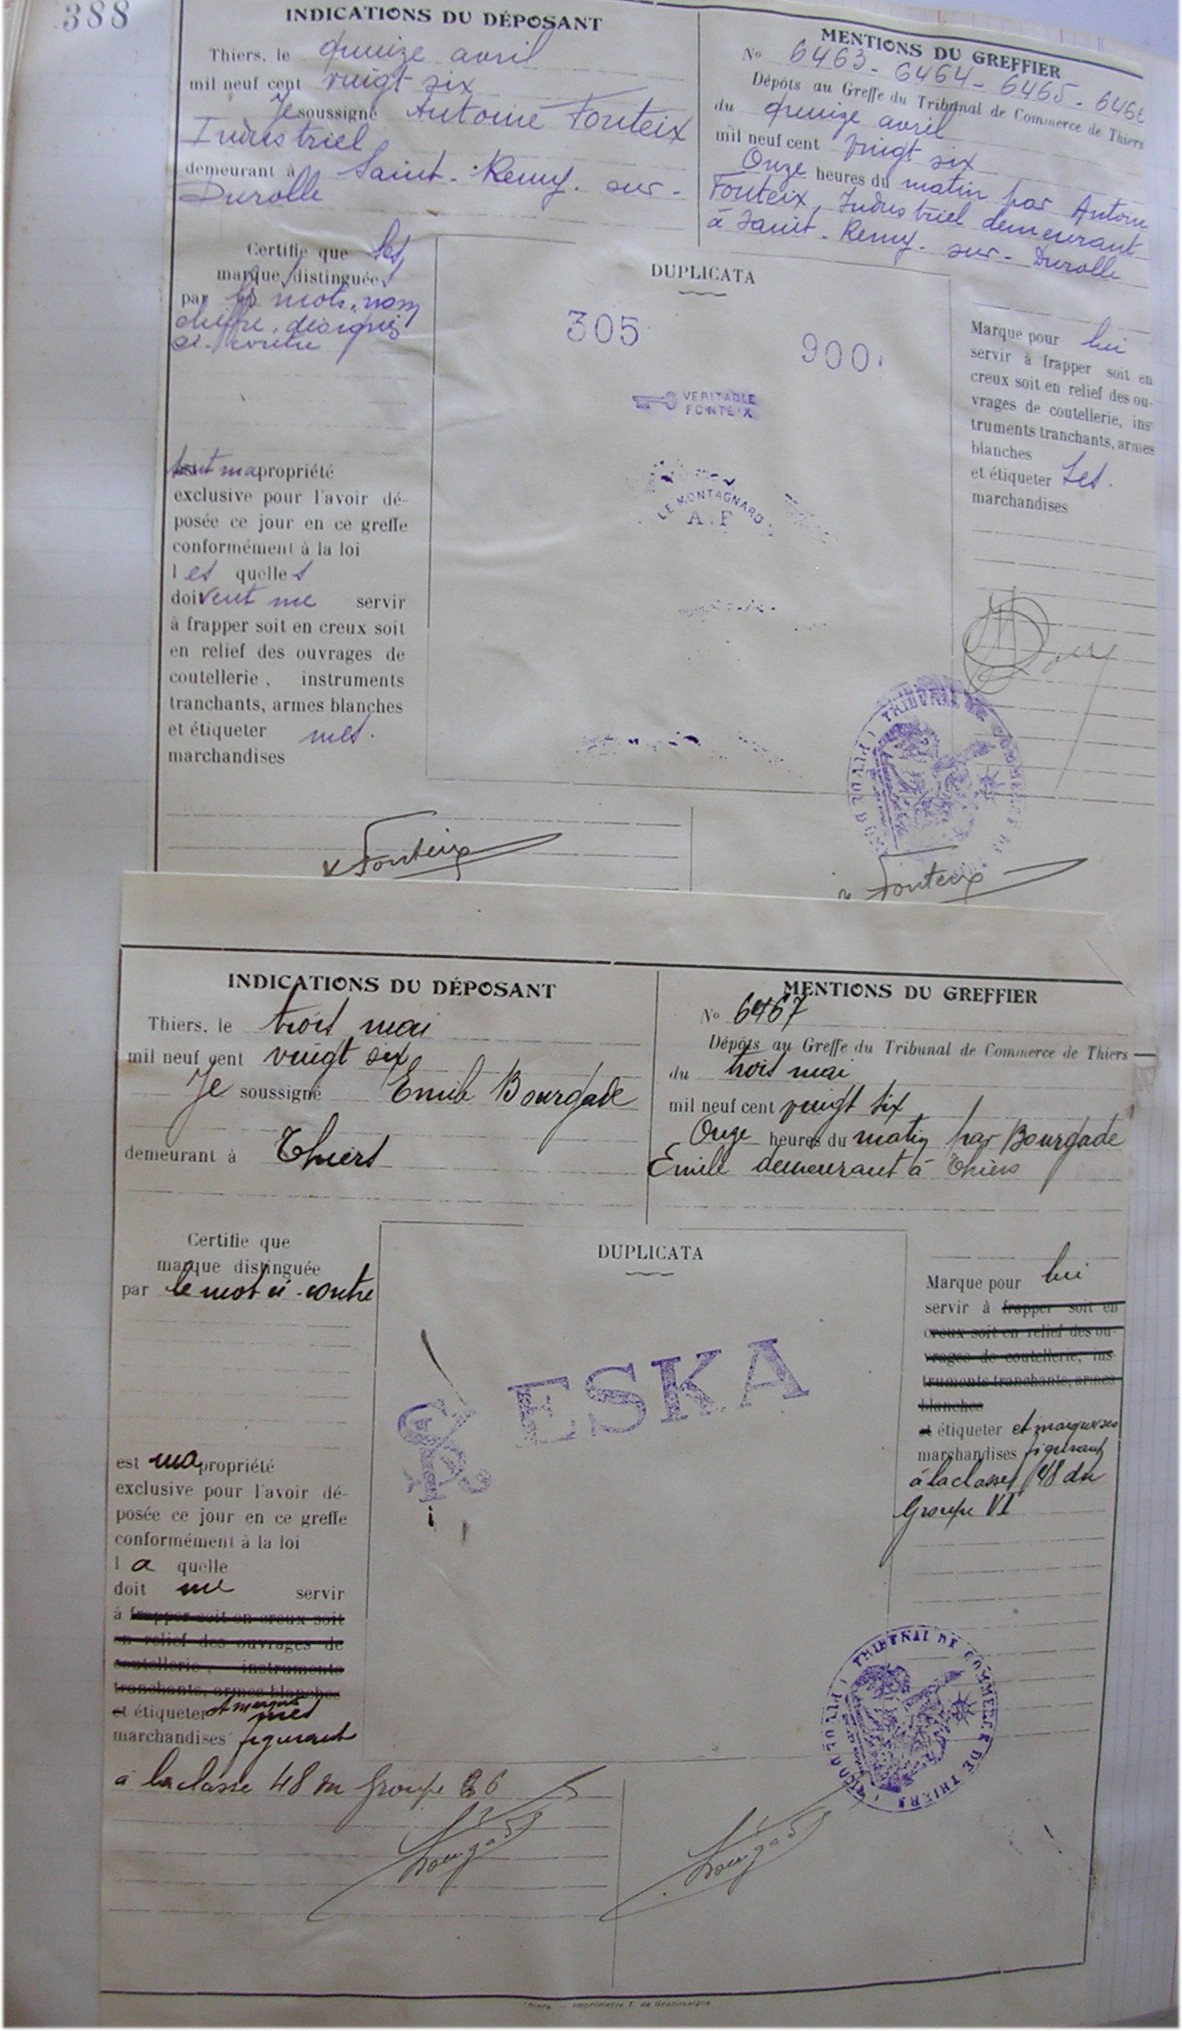 388
INDICATIONS DU DÉPOSANT
Thiers, le quinze avril
mil neuf cent vingt six
Je soussigné Antoine Fonteix
Industriel
demeurant à Saint-Remy-sur-
Durolle
MENTIONS DU GREFFIER
No 6463 - 6464 - 6465 - 6466
Dépôts au Greffe du Tribunal de Commerce de Thiers
du quinze avril
mil neuf cent vingt six
Onze heures du matin par Antoine
Fonteix, Industriel demeurant
à Saint-Remy-sur-Durolle
Certifie que les
marque distinguées
par les mots, nom
chiffre, désignés
ci-contre
sont ma propriété
exclusive pour l'avoir dé-
posée ce jour en ce greffe
conformément à la loi
les quelles
doivent me servir
à frapper soit en creux soit
en relief des ouvrages de
coutellerie, instruments
tranchants, armes blanches
et étiqueter mes
marchandises
DUPLICATA
305
900
VERITABLE
FONTEIX
LE MONTAGNARD
A.F
Marque pour lui
servir à frapper soit en
creux soit en relief des ou-
vrages de coutellerie, ins
truments tranchants, armes
blanches
et étiqueter ses
marchandises
TRIBUNAL DE COMMERCE DE
Fonteix
Fonteix
INDICATIONS DU DÉPOSANT
Thiers, le trois mai
mil neuf cent vingt six
Je soussigné Emile Bourgade
demeurant à Thiers
MENTIONS DU GREFFIER
No 6467
Dépôts au Greffe du Tribunal de Commerce de Thiers
du trois mai
mil neuf cent vingt six
Onze heures du matin par Bourgade
Emile demeurant à Thiers
Certifie que
marque distinguée
par le mot ci-contre
est ma propriété
exclusive pour l'avoir dé-
posée ce jour en ce greffe
conformément à la loi
la quelle
doit me servir
à frapper soit en creux soit
en relief des ouvrages de
coutellerie, instruments
tranchants, armes blanches
et étiqueter et marquer mes
marchandises figurant
à la classe 48 du Groupe 6
DUPLICATA
ESKA
Marque pour lui
servir à frapper soit en
creux soit en relief des ou-
vrages de coutellerie, ins
truments tranchants, armes
blanches
et étiqueter et marquer ses
marchandises figurant
à la classe 48 du
Groupe VI
TRIBUNAL DE COMMERCE DE THIERS (PUY DE DOME)
Bourgade
Bourgade
Thiers. — Imprimerie F. de Grandsaigne